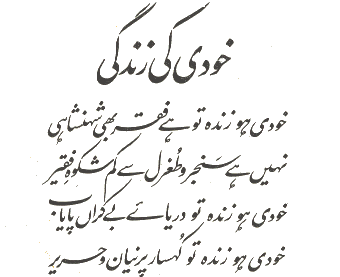 خودی کی زندگی
خودی ہو زندہ تو ہے فقر بھی شہنشاہی
نہیں ہے سَنجر و طُغرل سے کم شکوہِ فقیر
خودی ہو زندہ تو دریائے بے کراں پایاب
خودی ہو زندہ تو کُہسار پرنیان و حریر